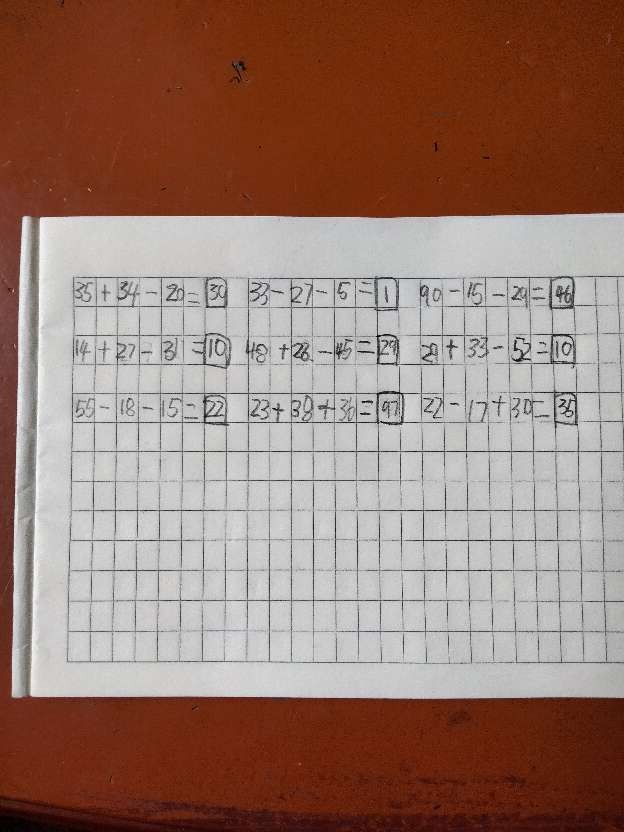 35+34-20=30 33-27-5=1 90-15-29=46
14+27-31=10 48+26-45=29 29+33-52=10
55-18-15=22 23+38+36=97 22-17+30=35